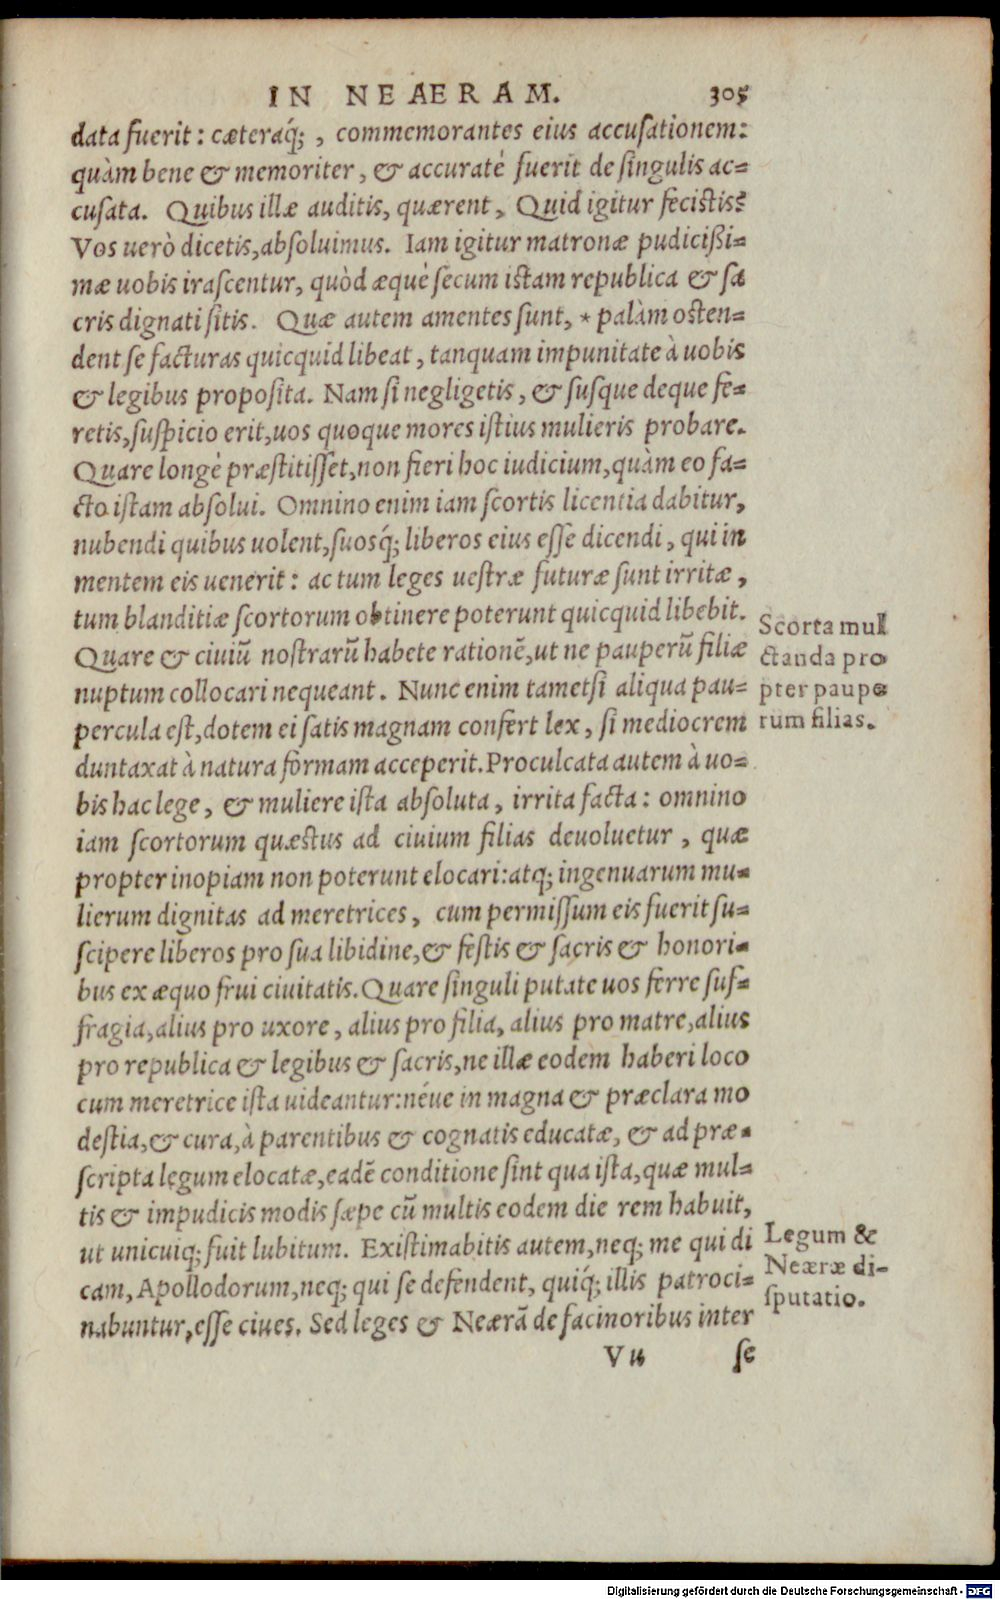 IN NEAERAM. 305
data fuerit: cæteraq́;, commemorantes eius accusationem:
quàm bene & memoriter, & accuratè fuerit de singulis ac=
cusata. Quibus illæ auditis, quærent, Quid igitur fecistis?
Vos uerò dicetis, absoluimus. Iam igitur matronæ pudicißi=
mæ uobis irascentur, quòd æquè secum istam republica & sa
cris dignati sitis. Quæ autem amentes sunt, * palàm osten=
dent se facturas quicquid libeat, tanquam impunitate à uobis
& legibus proposita. Nam si negligetis, & susque deque fe=
retis, suspicio erit, uos quoque mores istius mulieris probare.
Quare longè præstitisset, non fieri hoc iudicium, quàm eo fa=
cto istam absolui. Omnino enim iam scortis licentia dabitur,
nubendi quibus uolent, suosq́; liberos eius esse dicendi, qui in
mentem eis uenerit: ac tum leges uestræ futuræ sunt irritæ,
tum blanditiæ scortorum obtinere poterunt quicquid libebit.
Quare & ciuiũ nostrarũ habete rationẽ, ut ne pauperũ filiæ
nuptum collocari nequeant. Nunc enim tametsi aliqua pau=
percula est, dotem ei satis magnam confert lex, si mediocrem
duntaxat à natura formam acceperit. Proculcata autem à uo=
bis hac lege, & muliere ista absoluta, irrita facta: omnino
iam scortorum quæstus ad ciuium filias deuoluetur, quæ
propter inopiam non poterunt elocari: atq; ingenuarum mu=
lierum dignitas ad meretrices, cum permissum eis fuerit su=
scipere liberos pro sua libidine, & festis & sacris & honori=
bus ex æquo frui ciuitatis. Quare singuli putate uos ferre suf=
fragia, alius pro uxore, alius pro filia, alius pro matre, alius
pro republica & legibus & sacris, ne illæ eodem haberi loco
cum meretrice ista uideantur: néue in magna & præclara mo
destia, & cura, à parentibus & cognatis educatæ, & ad præ=
scripta legum elocatæ, eadẽ conditione sint qua ista, quæ mul=
tis & impudicis modis sæpe cũ multis eodem die rem habuit,
ut unicuiq; fuit lubitum. Existimabitis autem, neq; me qui di
cam, Apollodorum, neq; qui se defendent, quiq́; illis patroci=
nabuntur, esse ciues. Sed leges & Neærã de facinoribus inter
V u se
Scorta mul
ctanda pro
pter paupe
rum filias.
Legum &
Neæræ di=
sputatio.
Digitalisierung gefördert durch die Deutsche Forschungsgemeinschaft - DFG